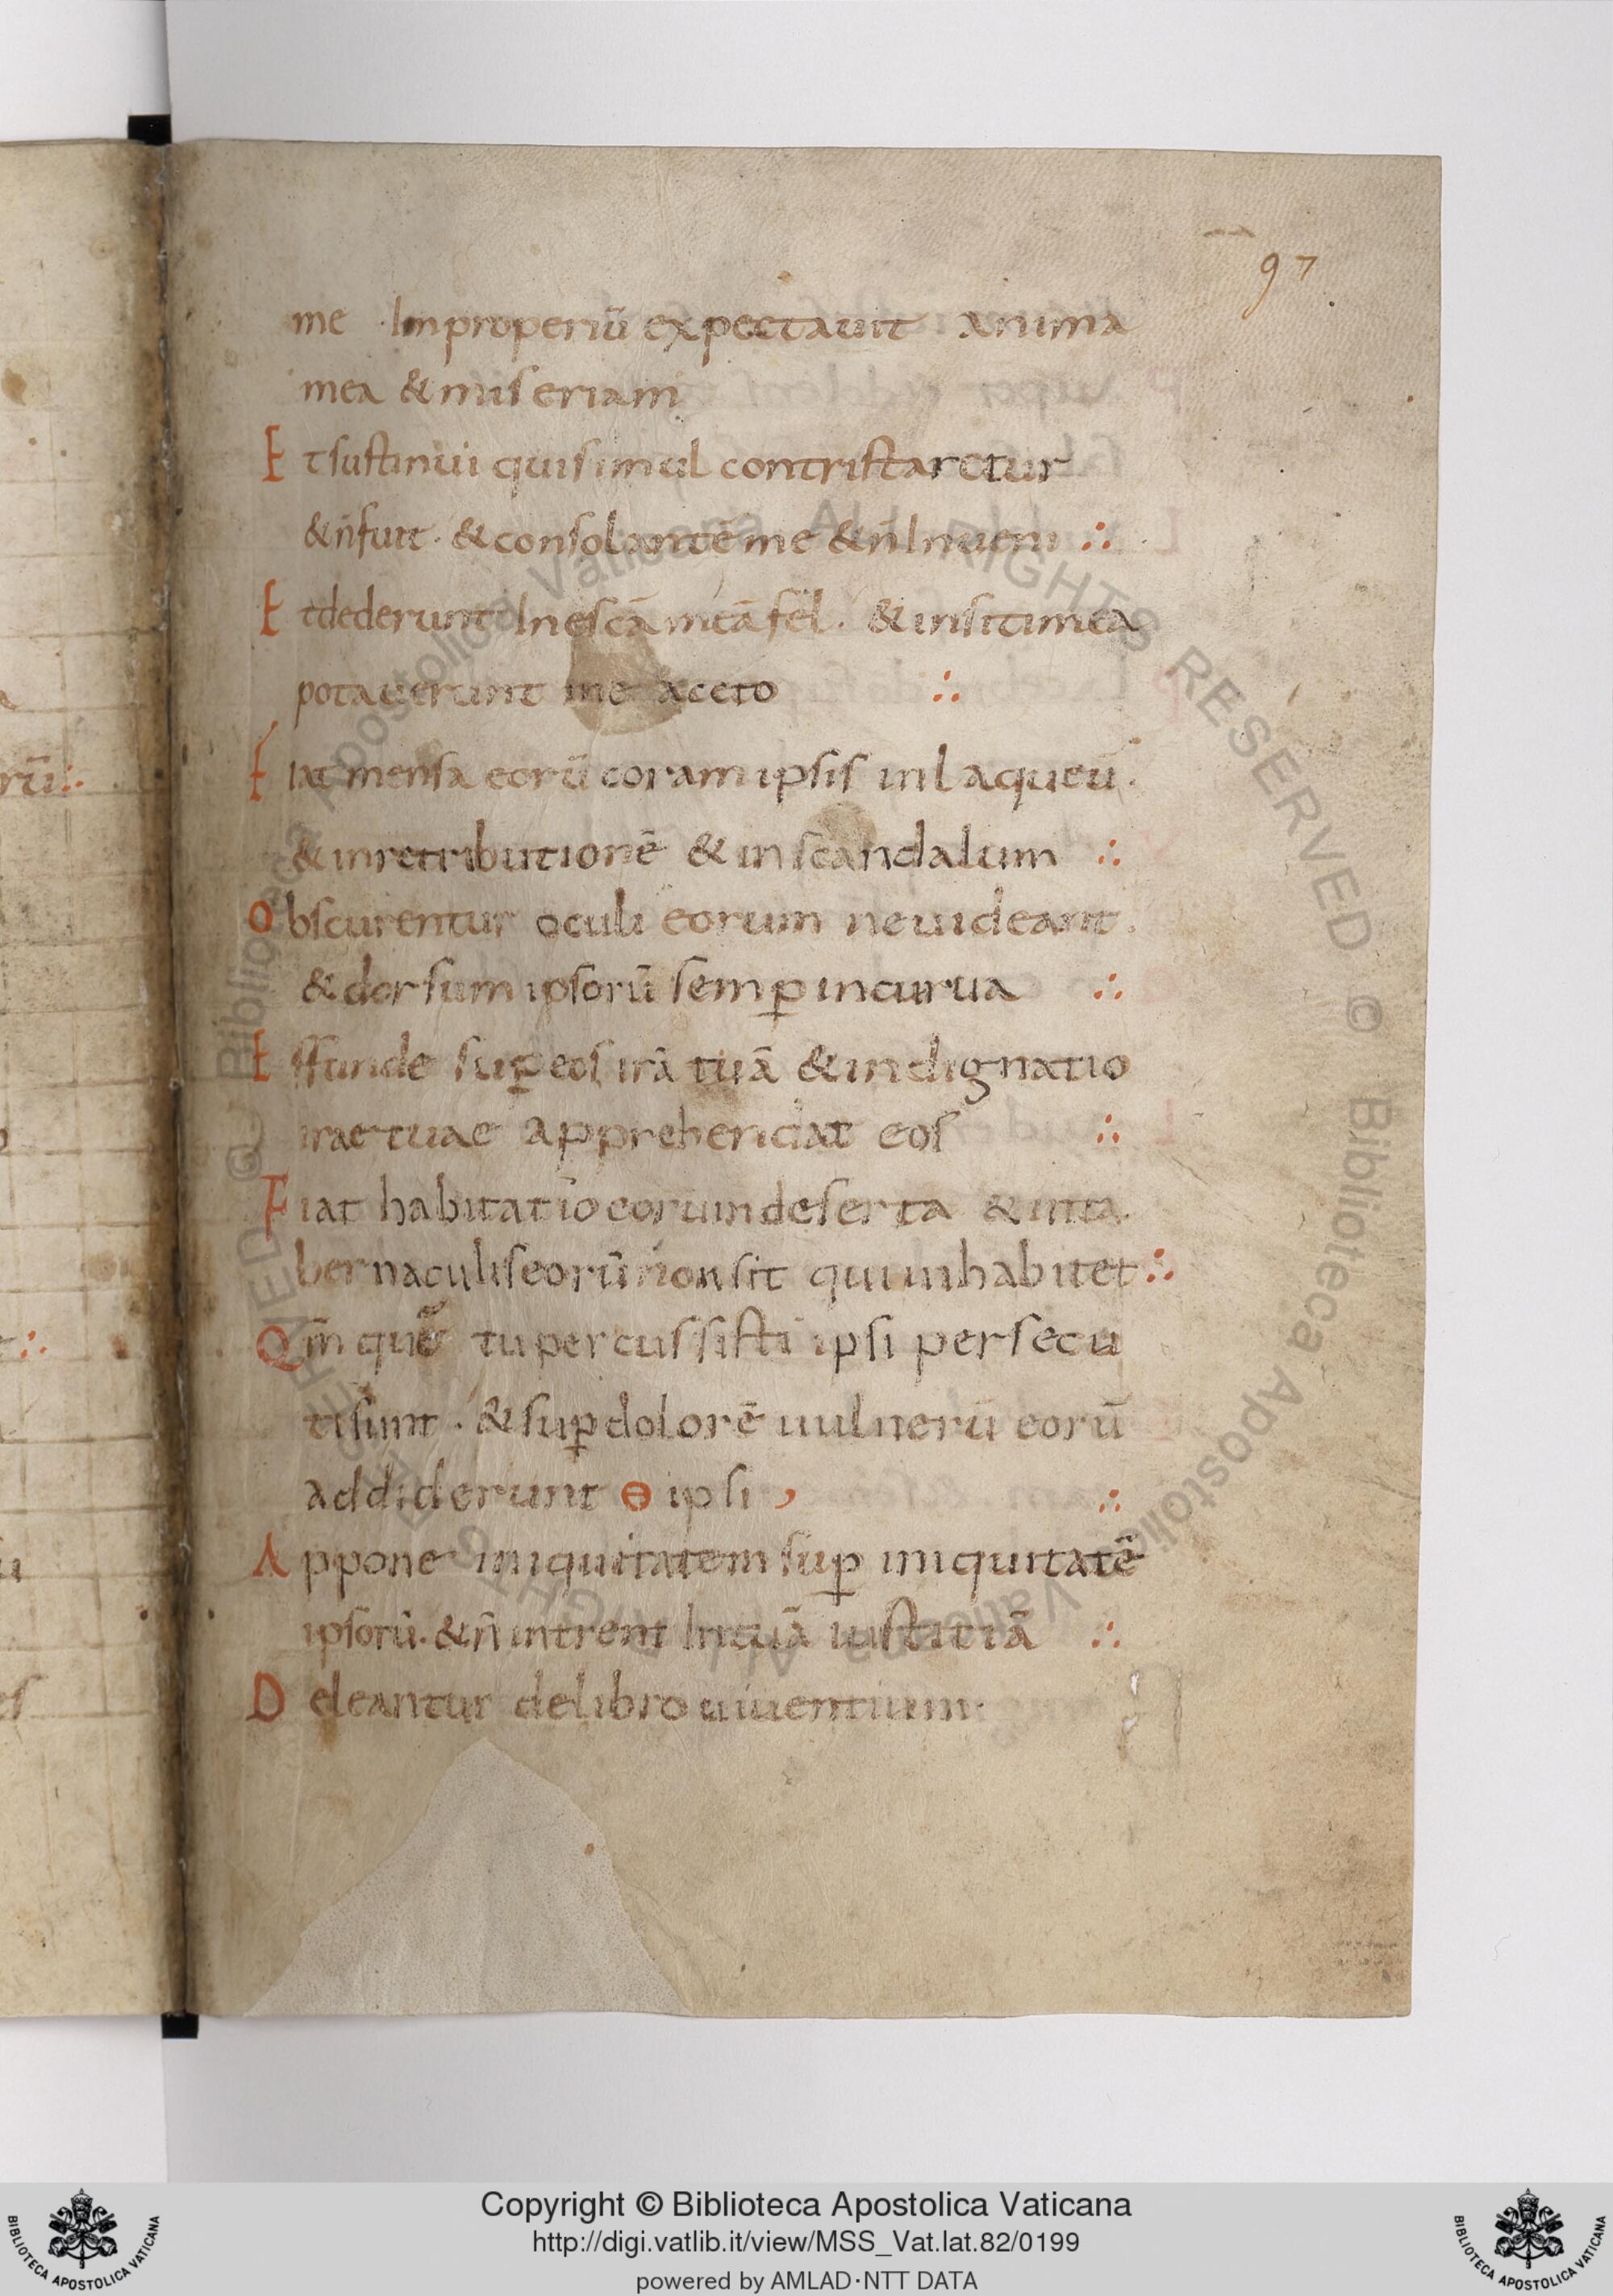 97
me · Improperiū expectauit anima
mea & miseriam
Et sustinui qui simul contristaretur
& n̄ fuit · & consolantē me & n̄ Inueni ∴
Et dederunt In escā meā fel · & in siti mea
potauerunt me aceto ∴
Fiat mensa eorū coram ipsis in laqueū ·
& in retributionē & in scandalum ∴
Obscurentur oculi eorum ne uideant ·
& dorsum ipsorū semꝑ incurua ∴
Effunde suꝑ eos irā tuā & indignatio
irae tuae apprehendat eos ∴
Fiat habitatio eorum deserta & in ta
bernaculis eorū non sit qui inhabitet ∴
Qm̄ quē tu percussisti ipsi persecu
ti sunt · & suꝑ dolorē uulnerū eorū
addiderunt ɵ ipsi ∴
Appone iniquitatem suꝑ iniquitatē
ipsorū · & n̄ intrent In tuā iustitiā ∴
Deleantur de libro uiuentium ·
© Biblioteca Apostolica Vaticana ALL RIGHTS RESERVED
Copyright © Biblioteca Apostolica Vaticana
http://digi.vatlib.it/view/MSS_Vat.lat.82/0199
powered by AMLAD·NTT DATA
BIBLIOTECA APOSTOLICA VATICANA
BIBLIOTECA APOSTOLICA VATICANA